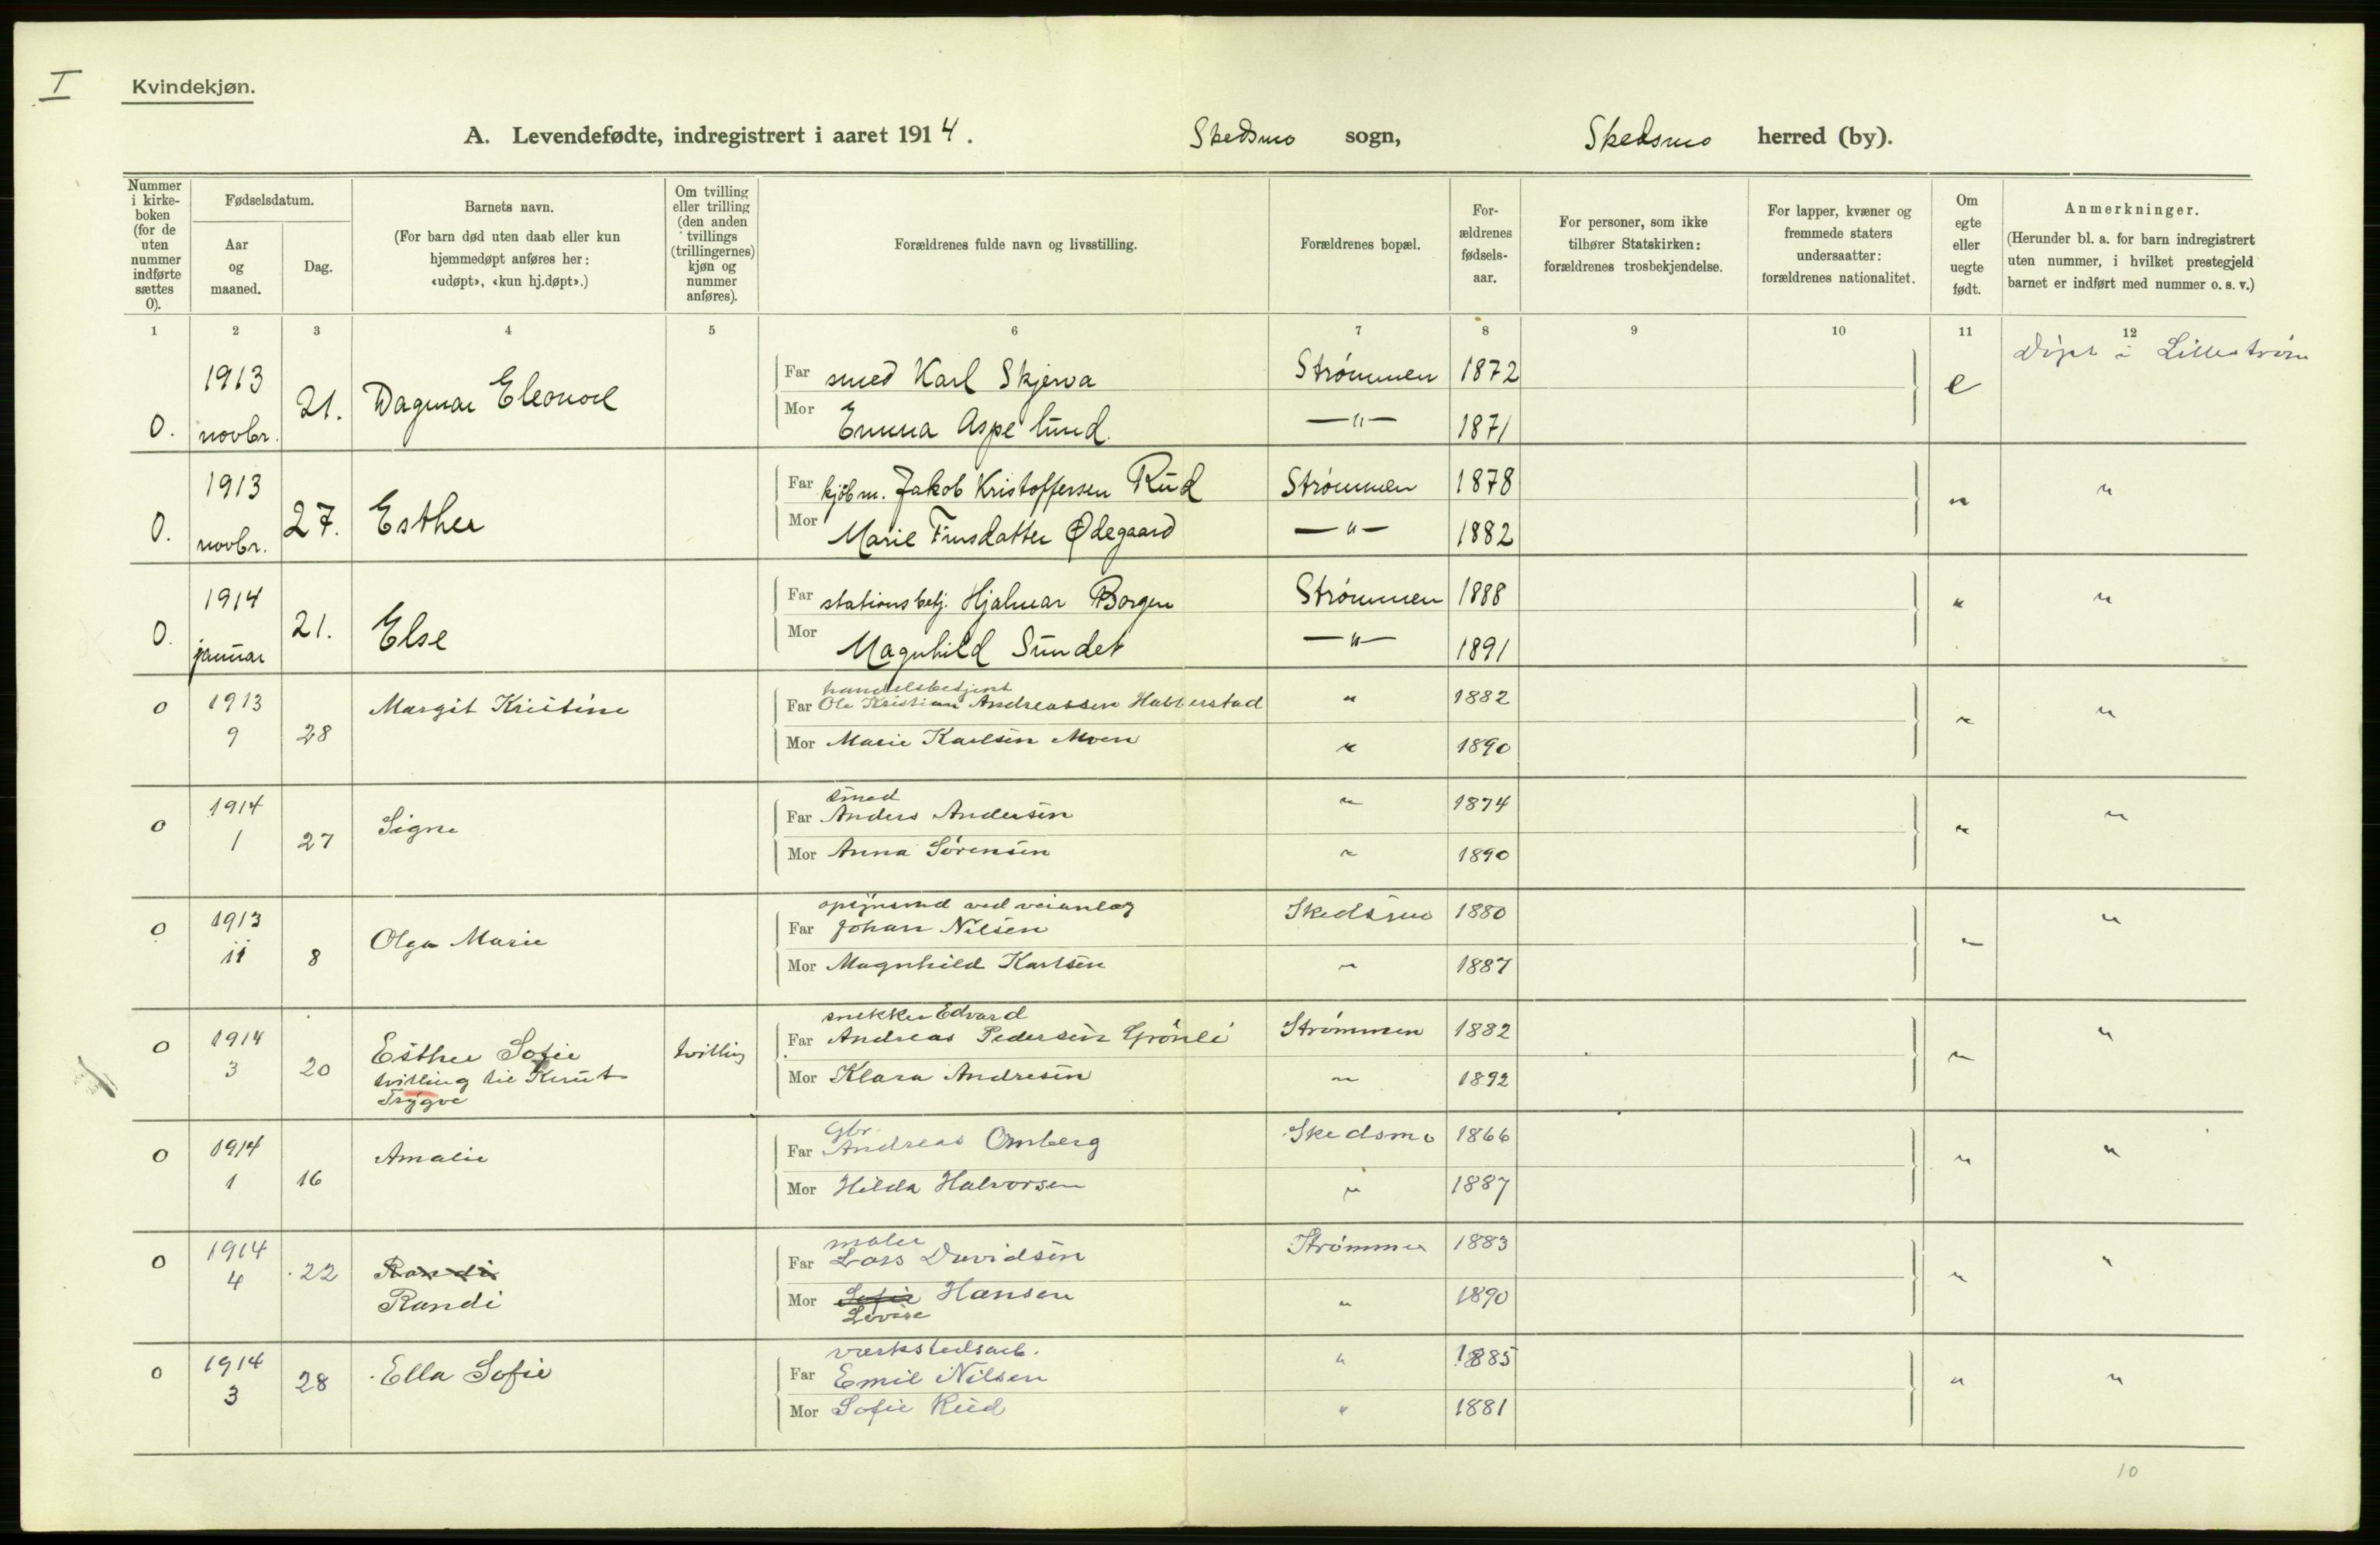 I
Kvindekjøn.
A. Levendefødte, indregistrert i aaret 1914. Skedsmo sogn, Skedsmo herred (by).
Nummer i kirke-boken (for de uten nummer indførte sættes 0).
Fødselsdatum.
Aar og maaned.
Dag.
Barnets navn.
(For barn død uten daab eller kun hjemmedøpt anføres her: «udøpt», «kun hj.døpt».)
Om tvilling eller trilling (den anden tvillings (trillingernes) kjøn og nummer anføres).
Forældrenes fulde navn og livsstilling.
Forældrenes bopæl.
For-ældrenes fødsels-aar.
For personer, som ikke tilhører Statskirken: forældrenes trosbekjendelse.
For lapper, kvæner og fremmede staters undersaatter: forældrenes nationalitet.
Om egte eller uegte født.
Anmerkninger.
(Herunder bl. a. for barn indregistrert uten nummer, i hvilket prestegjeld barnet er indført med nummer o. s. v.)
1 2 3 4 5 6 7 8 9 10 11 12
0. 1913 novbr. 21. Dagmar Eleonore Far smed Karl Skjerva Strømmen 1872 e Døpt i Lillestrøm
Mor Emma Aspelund —"— 1871
0. 1913 novbr. 27. Esther Far kjøbm. Jakob Kristoffersen Rud Strømmen 1878 " "
Mor Marie Finsdatter Ødegaard —"— 1882
0. 1914 januar 21. Else Far stationsbetj. Hjalmar Borgen Strømmen 1888 " "
Mor Magnhild Sundet —"— 1891
0 1913 9 28 Margit Kristine handelsbetjent
Far Ole Kristian Andreassen Habberstad " 1882 " "
Mor Marie Karlsen Moen " 1890
0 1914 1 27 Signe smed
Far Anders Andersen " 1874 " "
Mor Anna Sørensen " 1890
0 1913 11 8 Olga Marie opsynsmd ved veianlæg
Far Johan Nilsen Skedsmo 1880 " "
Mor Magnhild Karlsen " 1887
0 1914 3 20 Esther Sofie tvilling snekker Edvard
tvilling til Knut
Trygve
Far Andreas Pedersen Grønli Strømmen 1882 " "
Mor Klara Andresen " 1892
0 1914 1 16 Amalie Gbr.
Far Andreas Omberg Skedsmo 1866 " "
Mor Hilda Halvorsen " 1887
0 1914 4 22 Randi maler
Randi
Far Lars Davidsen Strømmen 1883 " "
Mor Sofie Hansen " 1890
Lovise
0 1914 3 28 Ella Sofie værkstedsarb.
Far Emil Nilsen " 1885 " "
Mor Sofie Rud " 1881
10